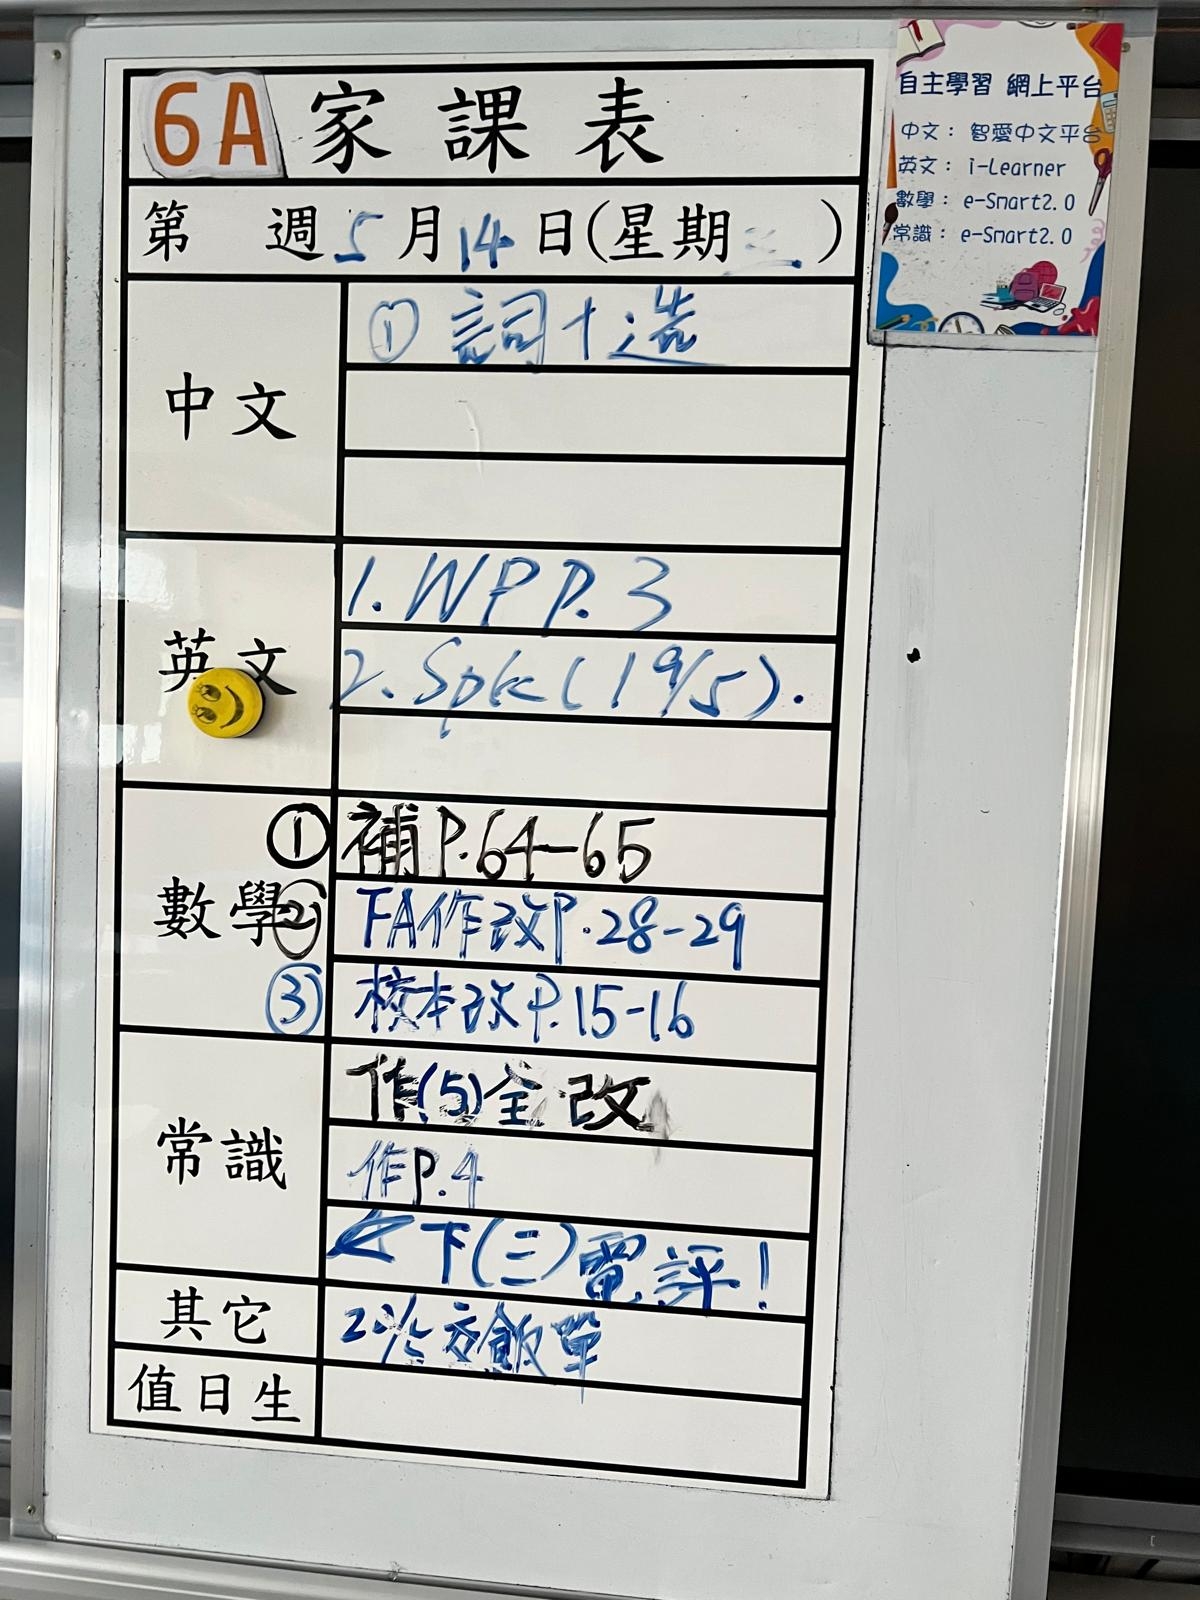 6A 家課表
第 週 5月14日(星期三)
中文
① 詞十造
英文
1. WP P.3
2. Spk (19/5).
數學
① 補P.64-65
② FA作改P.28-29
③ 校本改P.15-16
常識
作(5)全改
作P.4
下(三)電評!
其它
交飯單
值日生
自主學習 網上平台
中文： 智愛中文平台
英文： i-Learner
數學： e-Smart2.0
常識： e-Smart2.0